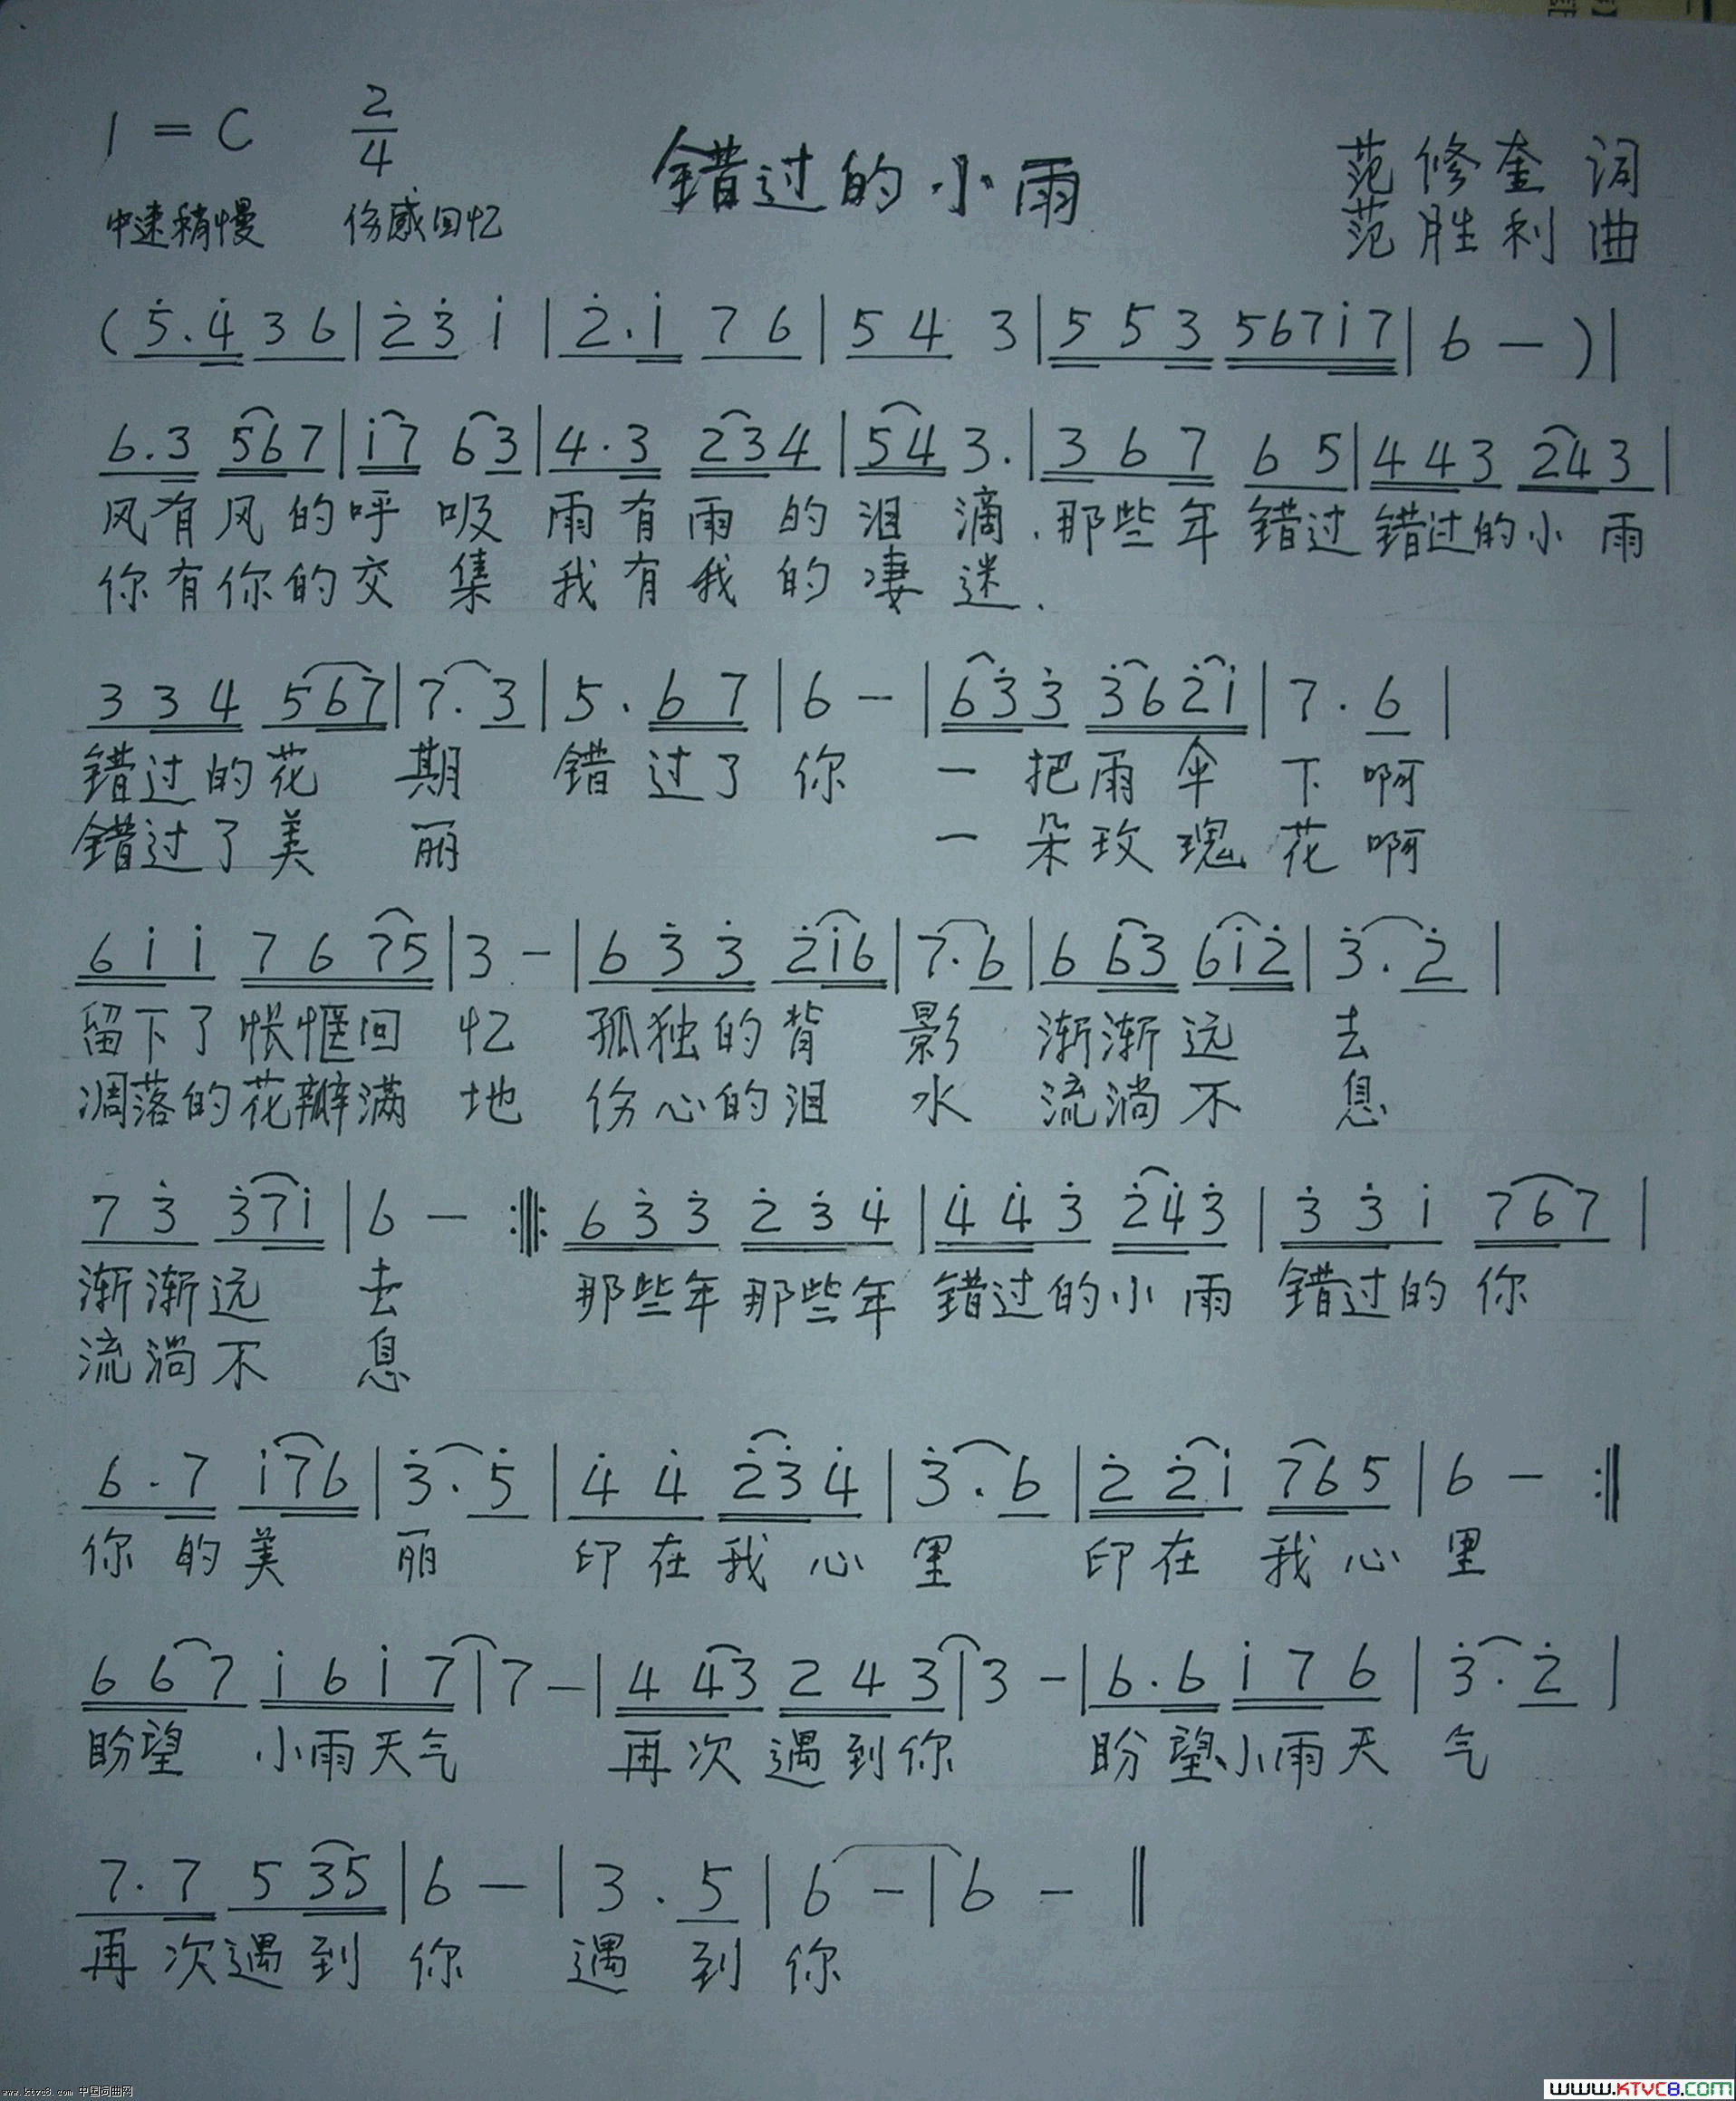 1 = C 2/4
错过的小雨
范修奎 词
中速稍慢 伤感回忆
范胜利 曲
( 5̇. 4̇ 3 6 | 2̇ 3̇ i | 2̇. i 7 6 | 5 4 3 | 5 5 3 5 6 7 i 7 | 6 — ) |
6. 3 5 6 7 | i 7 6 3 | 4. 3 2 3 4 | 5 4 3. | 3 6 7 6 5 | 4 4 3 2 4 3 |
风有风的呼吸 雨有雨的泪滴. 那些年错过错过的小雨
你有你的交集 我有我的凄迷.
3 3 4 5 6 7 | 7. 3 | 5. 6 7 | 6 — | 6 3̇ 3̇ 3̇ 6 2̇ i | 7. 6 |
错过的花期 错过了你 一把雨伞下啊
错过了美丽 一朵玫瑰花啊
6 i i 7 6 7 5 | 3 — | 6 3̇ 3̇ 2̇ i 6 | 7. 6 | 6 6 3 6 i 2̇ | 3̇. 2̇ |
留下了怅惬回忆 孤独的背影 渐渐远去
凋落的花瓣满地 伤心的泪水 流淌不息
7 3̇ 3̇ 7 i | 6 — :‖: 6 3̇ 3̇ 2̇ 3̇ 4̇ | 4̇ 4̇ 3̇ 2̇ 4̇ 3̇ | 3̇ 3̇ i 7 6 7 |
渐渐远去 那些年那些年 错过的小雨 错过的你
流淌不息
6. 7 i 7 6 | 3̇. 5̇ | 4̇ 4̇ 2̇ 3̇ 4̇ | 3̇. 6 | 2̇ 2̇ i 7 6 5 | 6 — :‖
你的美丽 印在我心里 印在我心里
6 6 7 i 6 i 7 | 7 — | 4 4 3 2 4 3 | 3 — | 6. 6 i 7 6 | 3̇. 2̇ |
盼望 小雨天气 再次遇到你 盼望小雨天气
7. 7 5 3 5 | 6 — | 3. 5 | 6 — | 6 — ‖
再次遇到你 遇到你
www.ktvc8.com 中国词曲网
WWW.KTVC8.COM